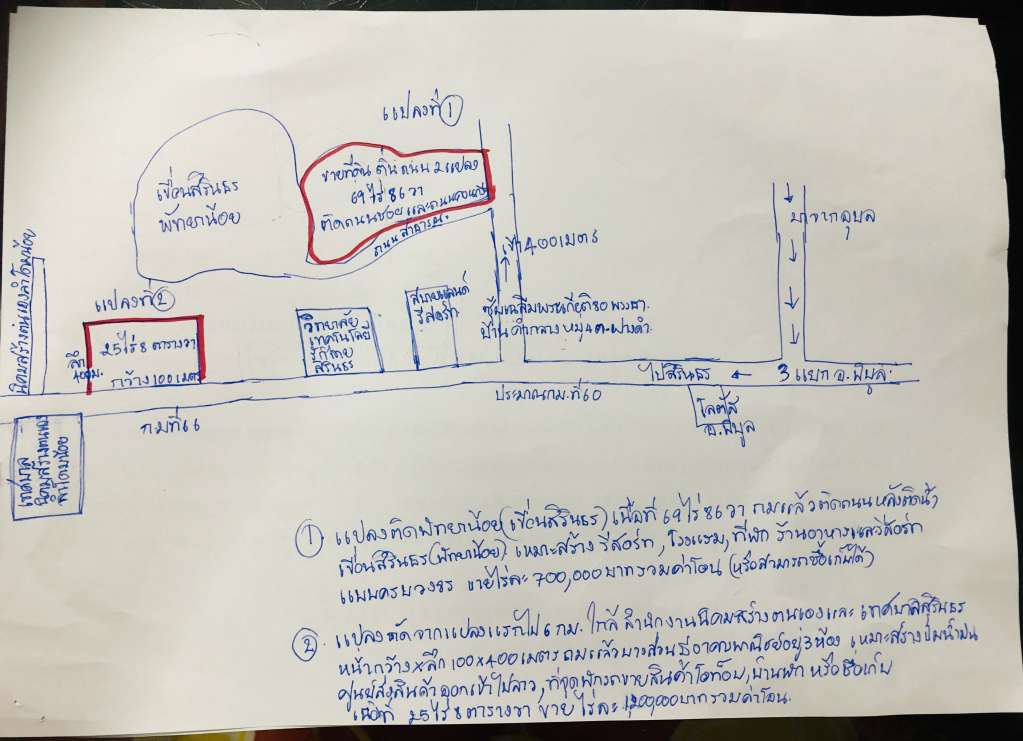 แปลงที่ 1
ขายที่ดิน ติดถนน 2 แปลง
69 ไร่ 86 วา
ติดถนนซอย และถนน
ถนนสาธารณะ
เขื่อนสิรินธร
พัทยาน้อย
มาจากอุบล
เข้า 400 เมตร
นิคมสร้างตนเองลำโดมน้อย
แปลงที่ 2
25 ไร่ 8 ตารางวา
กว้าง 100 เมตร
ลึก
400 ม.
วิทยาลัย
เทคโนโลยี
รักไทย
สิรินธร
สบายแลนด์
รีสอร์ท
ซุ้มเฉลิมพระเกียรติ 80 พรรษา
บ้านคำกลาง หมู่ ต.ฝางคำ
ไปสิรินธร ← 3 แยก อ.พิบูล
ประมาณกม.ที่ 60
กมที่ 66
โลตัส
อ.พิบูล
เทศบาล
นิคมสร้างตนเอง
ลำโดมน้อย
1 แปลงติดพัทยาน้อย (เขื่อนสิรินธร) เนื้อที่ 69 ไร่ 86 วา ถมแล้วติดถนนหลังติดน้ำ
เขื่อนสิรินธร (พัทยาน้อย) เหมาะสร้าง รีสอร์ท, โรงแรม, ที่พัก ร้านอาหารและรีสอร์ท
แบบครบวงจร ขายไร่ละ 700,000 บาทรวมค่าโอน (หรือสามารถซื้อเก็บได้)
2 แปลงถัดจากแปลงแรกไป 6 กม. ใกล้ สำนักงานนิคมสร้างตนเองและ เทศบาลสิรินธร
หน้ากว้าง x ลึก 100 x 400 เมตร ถมแล้วบางส่วน มีอาคารพาณิชย์อยู่ 3 ห้อง เหมาะสร้างปั๊มน้ำมัน
ศูนย์ส่งสินค้าออกเข้าไปลาว, ที่จุดพักรถขายสินค้าโอท็อป, บ้านพัก หรือซื้อเก็บ
เนื้อที่ 25 ไร่ 8 ตารางวา ขาย ไร่ละ 1,200,000 บาทรวมค่าโอน.